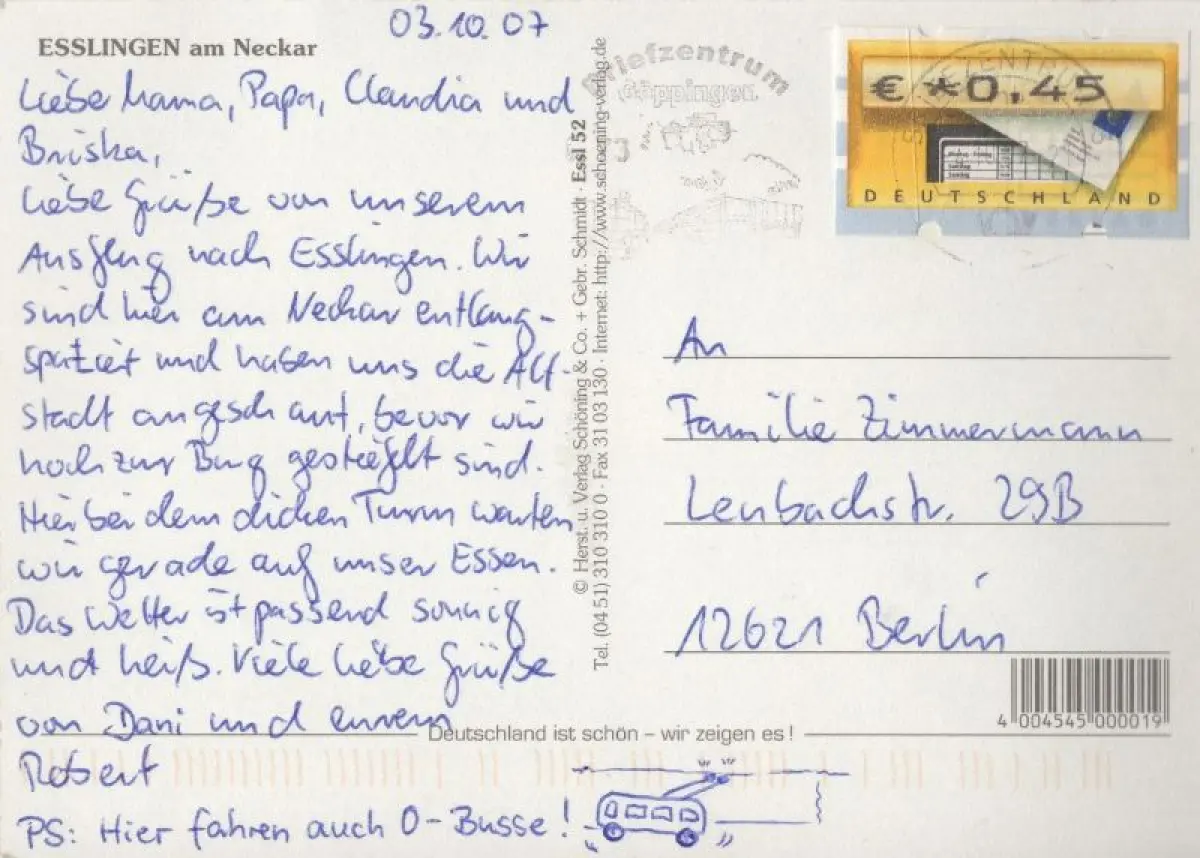 03.10.07
ESSLINGEN am Neckar
Liebe Mama, Papa, Claudia und
Briska,
Liebe Grüße von unserem
Ausflug nach Esslingen. Wir
sind hier am Neckar entlang-
spaziert und haben uns die Alt-
stadt angeschaut, bevor wir
hoch zur Burg gestiefelt sind.
Hier bei dem dicken Turm warten
wir gerade auf unser Essen.
Das Wetter ist passend sonnig
und heiß. Viele liebe Grüße
von Dani und eurem
Robert
PS: Hier fahren auch O-Busse!
© Herst. u. Verlag Schöning & Co. + Gebr. Schmidt · Essl 52
Tel. (04 51) 310 310 0 · Fax 31 03 130 · Internet: http://www.schoening-verlag.de
Briefzentrum
Göppingen
€ *0,45
DEUTSCHLAND
An
Familie Zimmermann
Lenbachstr. 29B
12621 Berlin
4 004545 000019
Deutschland ist schön – wir zeigen es!